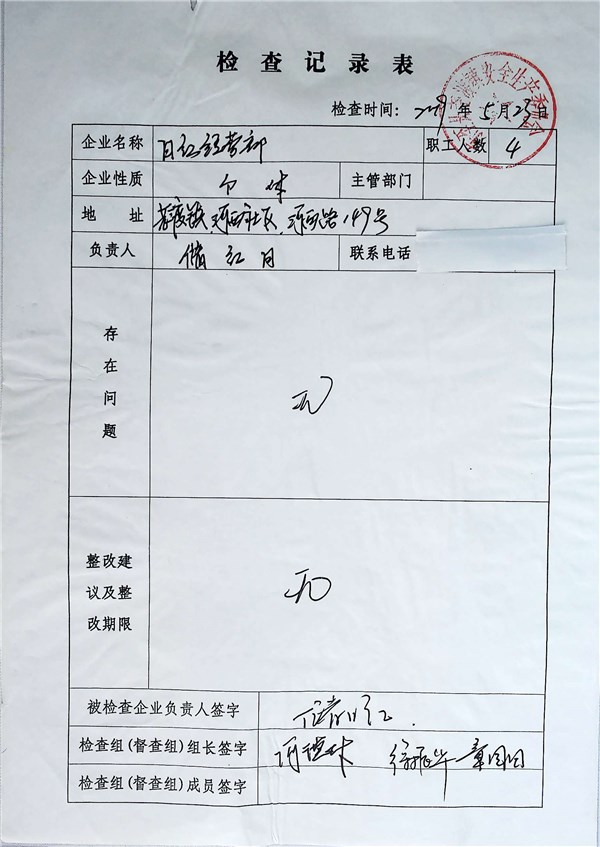 检查记录表
检查时间: 2019年5月23日
企业名称 日红经营部 职工人数 4
企业性质 个体 主管部门
地址 社区 149号
负责人 储红日 联系电话
存在问题
无
整改建议及整改期限
无
被检查企业负责人签字 储日红.
检查组(督查组)组长签字
检查组(督查组)成员签字